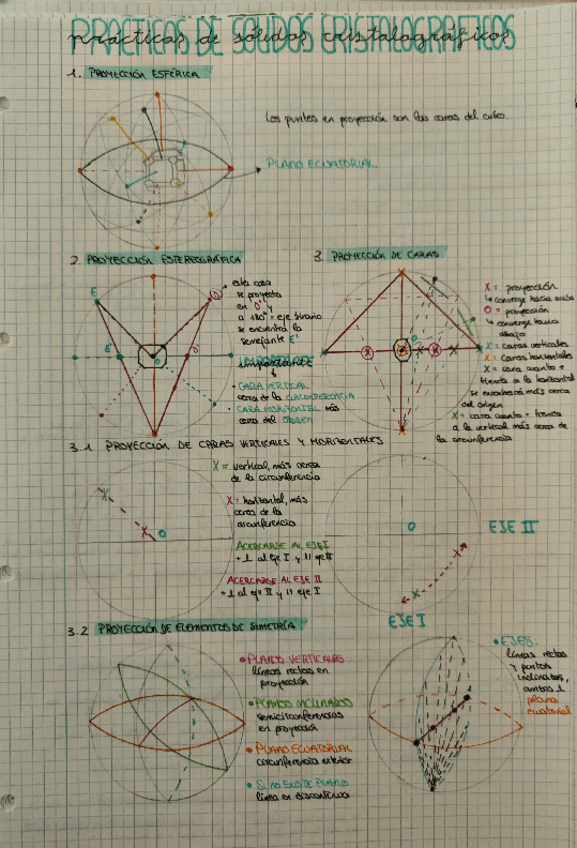 PRÁCTICAS DE SÓLIDOS CRISTALOGRÁFICOS
prácticas de sólidos cristalográficos
1. PROYECCIÓN ESFÉRICA
Los puntos en proyección son las caras del cubo.
PLANO ECUATORIAL
2. PROYECCIÓN ESTEREOGRÁFICA
E
D
E'
D'
O
esta cara
se proyecta
en D' y
a 180° = eje binario
se encuentra la
semejante E'
IMPORTANTE
importante
• CARA VERTICAL
cerca de la CIRCUNFERENCIA
• CARA HORIZONTAL más
cerca del ORIGEN
3. PROYECCIÓN DE CARAS
X = proyección
↳ converge hacia arriba
O = proyección
↳ converge hacia
abajo
X = caras verticales
X = caras horizontales
X = cara cuanto +
tienda a la horizontal
se encontrará más cerca
del origen
X = cara cuanto + tienda
a la vertical más cerca de
la circunferencia
3.1 PROYECCIÓN DE CARAS VERTICALES Y HORIZONTALES
X = vertical, más cerca
de la circunferencia
X = horizontal, más
cerca de la
circunferencia
O
ACERCARSE AL EJE I
→ ⊥ al eje I y || eje II
ACERCARSE AL EJE II
→ ⊥ al eje II y || eje I
O
EJE II
EJE I
3.2 PROYECCIÓN DE ELEMENTOS DE SIMETRÍA
• PLANOS VERTICALES
líneas rectas en
proyección
• PLANOS INCLINADOS
semicircunferencias
en proyección
• PLANO ECUATORIAL
circunferencia exterior
• SI NO EXISTE PLANO
línea en discontinua
• EJES:
líneas rectas
y puntos
inclinados,
ambos ⊥
plano
ecuatorial